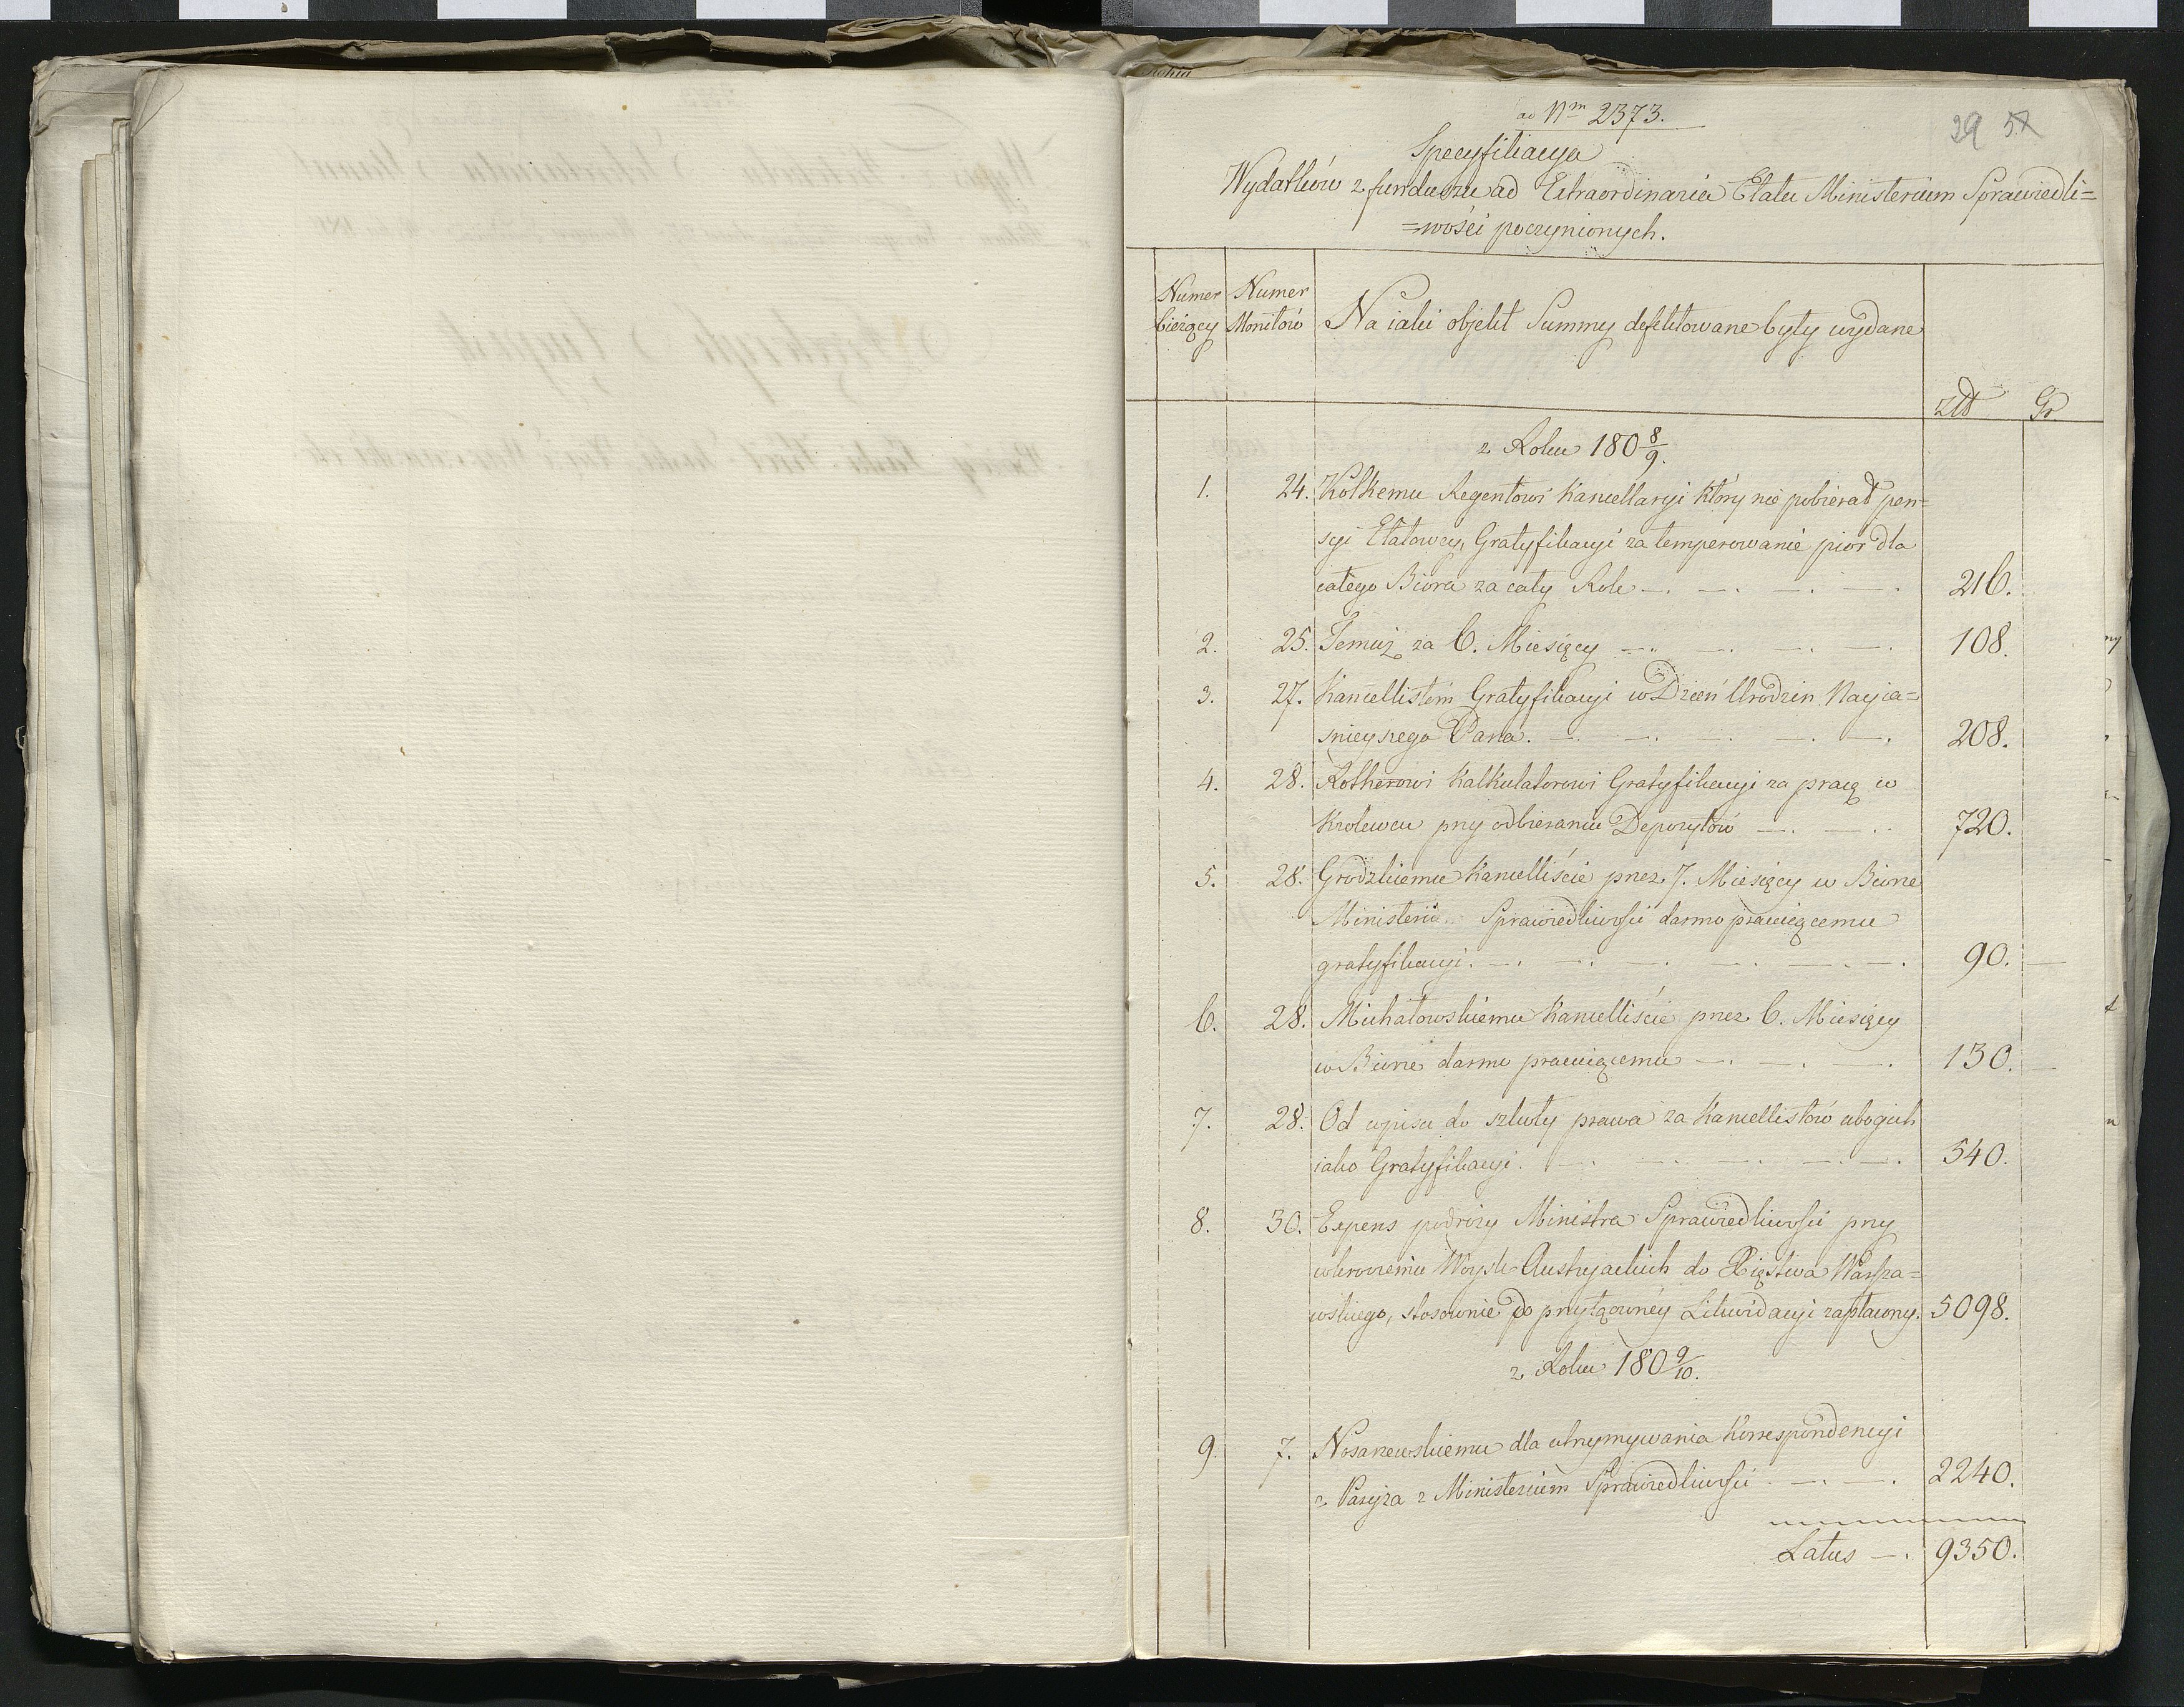 ad Nrm 2373.
29 57
Specyfikacya
Wydatków z funduszu ad Extraordinaria Etatu Ministerium Sprawiedli=
=wości poczynionych.
Numer bieżący
Numer Monitów
Na iaki objekt Summy defektowane były wydane
Złł Gr
z Roku 180 8/9.
1. 24. Kolkemu Regentowi Kancellaryi który nie pobierał pen=
syi Etatowey, Gratyfikacyi za temperowanie pior dla
całego Biora za cały Rok —. —. —. —. 216.
2. 25. Temuż za 6. Miesięcy —. —. —. —. 108.
3. 27. Kancellistom Gratyfikacyi w Dzień Urodzin Nayia=
snieyszego Pana. —. —. —. —. —. 208.
4. 28. Rotherowi Kalkulatorowi Gratyfikacyi za pracę w
Krolewcu przy odbieraniu Depozytów —. —. 720.
5. 28. Grodzkiemu Kancelliście przez 7. Miesięcy w Biorze
Ministerii Sprawiedliwości darmo pracuiącemu
gratyfikacyi. —. —. —. —. —. 90. —
6. 28. Michałowskiemu Kancelliście przez 6. Miesięcy
w Biorze darmo pracuiącemu —. —. —. 130. —
7. 28. Od wpisu do szkoły prawa za Kancellistów ubogich
iako Gratyfikacyi. —. —. —. —. —. 540.
8. 30. Expens podróży Ministra Sprawiedliwości przy
wkroczeniu Woysk Austryackich do Xięstwa Warsza=
wskiego, stosownie do przyłączoney Likwidacyi zapłacony. 5098.
z Roku 180 9/10.
9. 7. Nosarzewskiemu dla utrzymywania Korrespondencyi
z Paryża z Ministerium Sprawiedliwości —. —. 2240.
Latus —. 9350.